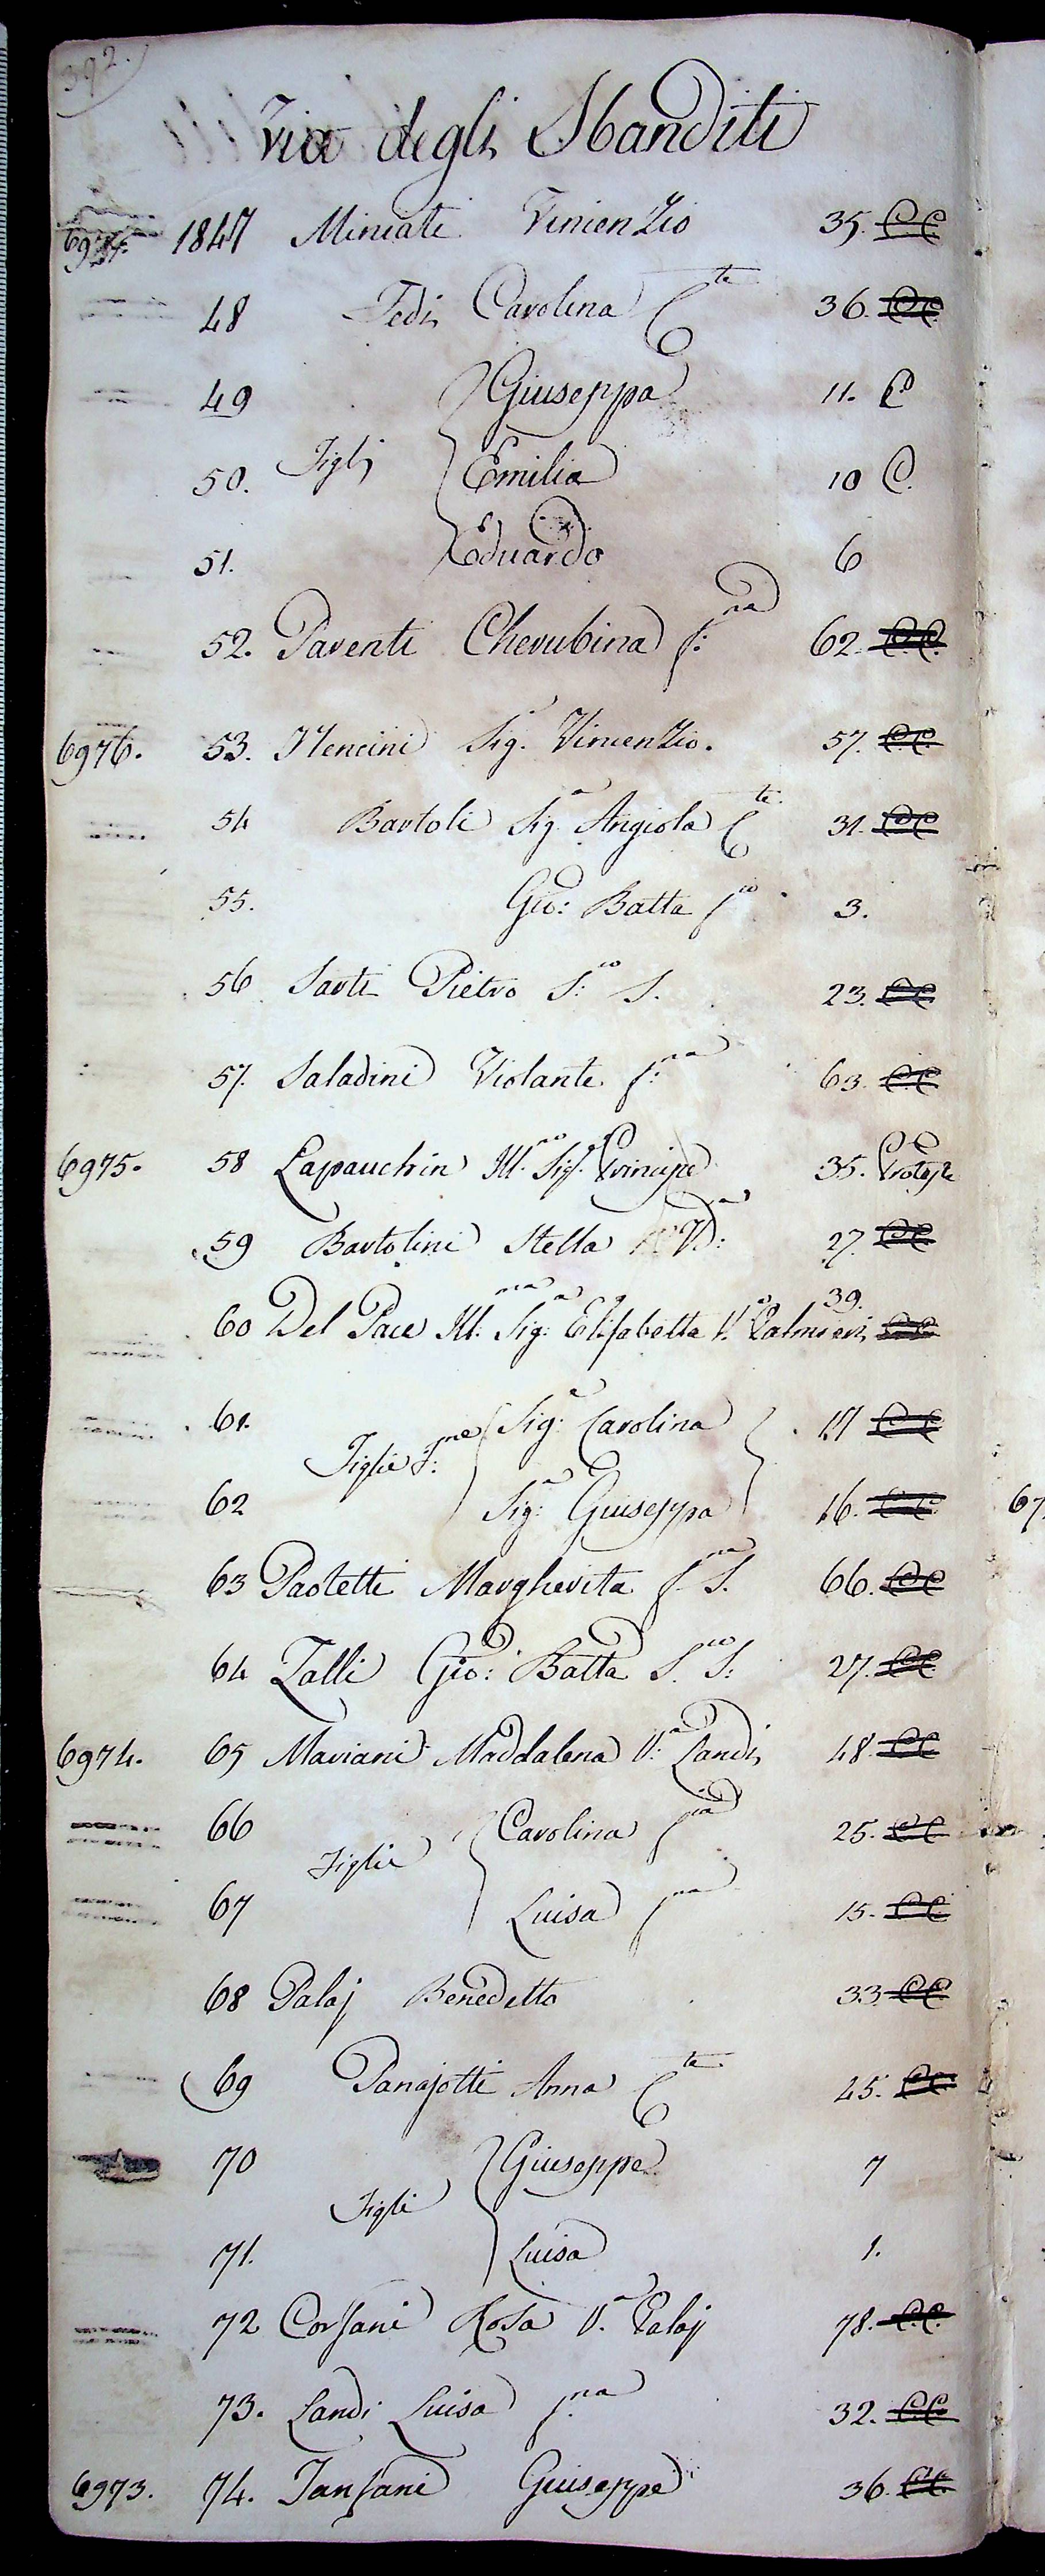 392.
Via degli Sbanditi
697 1847 Miniati Vinienzio 35. C C
48 Fedi Carolina C.te 36. C C
49 Giuseppa 11. C
Figli
50. Emilia 10 C.
51. Eduardo 6
52. Parenti Cherubina f:na 62. C.C.
6976. 53. Nencini Sig. Vincenzio. 57. C.C.
54 Bartoli Sig.a Angiola C.te 31. C C
55. Gio: Batta f.co 3.
56 Sarti Pietro S:co S. 23. C C
57. Saladini Violante f:na 63. C C
6975. 58 Lapauchin Ill.mo Sig.e Principe 35. Protes.te
59 Bartolini Stella V: 27 C C
39.
60 Del Pace Ill:ma Sig:a Elisabetta V.a Palmieri C C
61. Sig:a Carolina 17 C C
Figlie F:ne
62 Sig:a Giuseppa 16. C C
63 Paoletti Margherita f.na S. 66. C C
64 Zalli Gio: Batta S.co S: 27. C C
6974. 65 Mariani Maddalena V:a Landi 48 C C
66 Carolina f.na 25. C C
Figlie
67 Luisa f.na 15. C C
68 Palaj Benedetto 33 C C
69 Panajotti Anna C.te 25. C C
70 Giuseppe 7
Figli
71. Luisa 1.
72 Corsani Rosa V.a Palaj 78. C.C.
73. Landi Luisa f.na 32. C.C.
6973. 74. Tansani Giuseppe 36. C C.